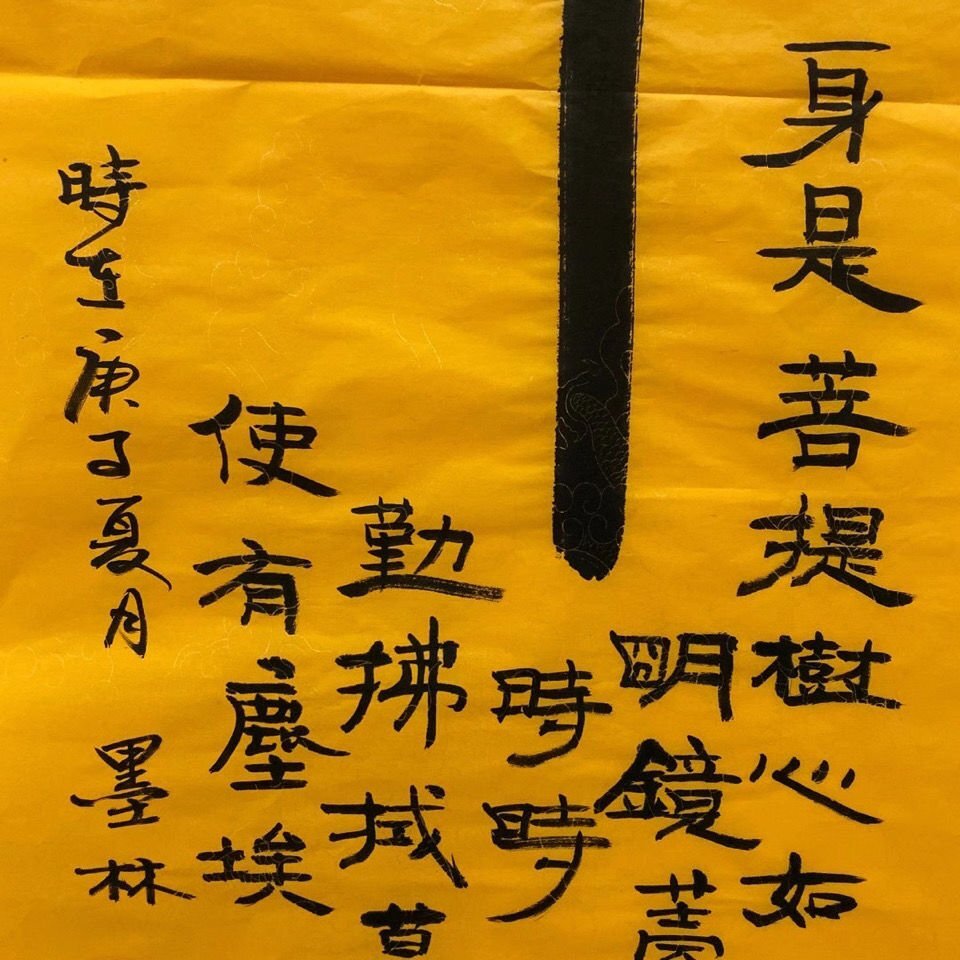 身是菩提樹心如
明鏡
時時
勤拂拭莫
使有塵埃
時在庚子夏月 墨林